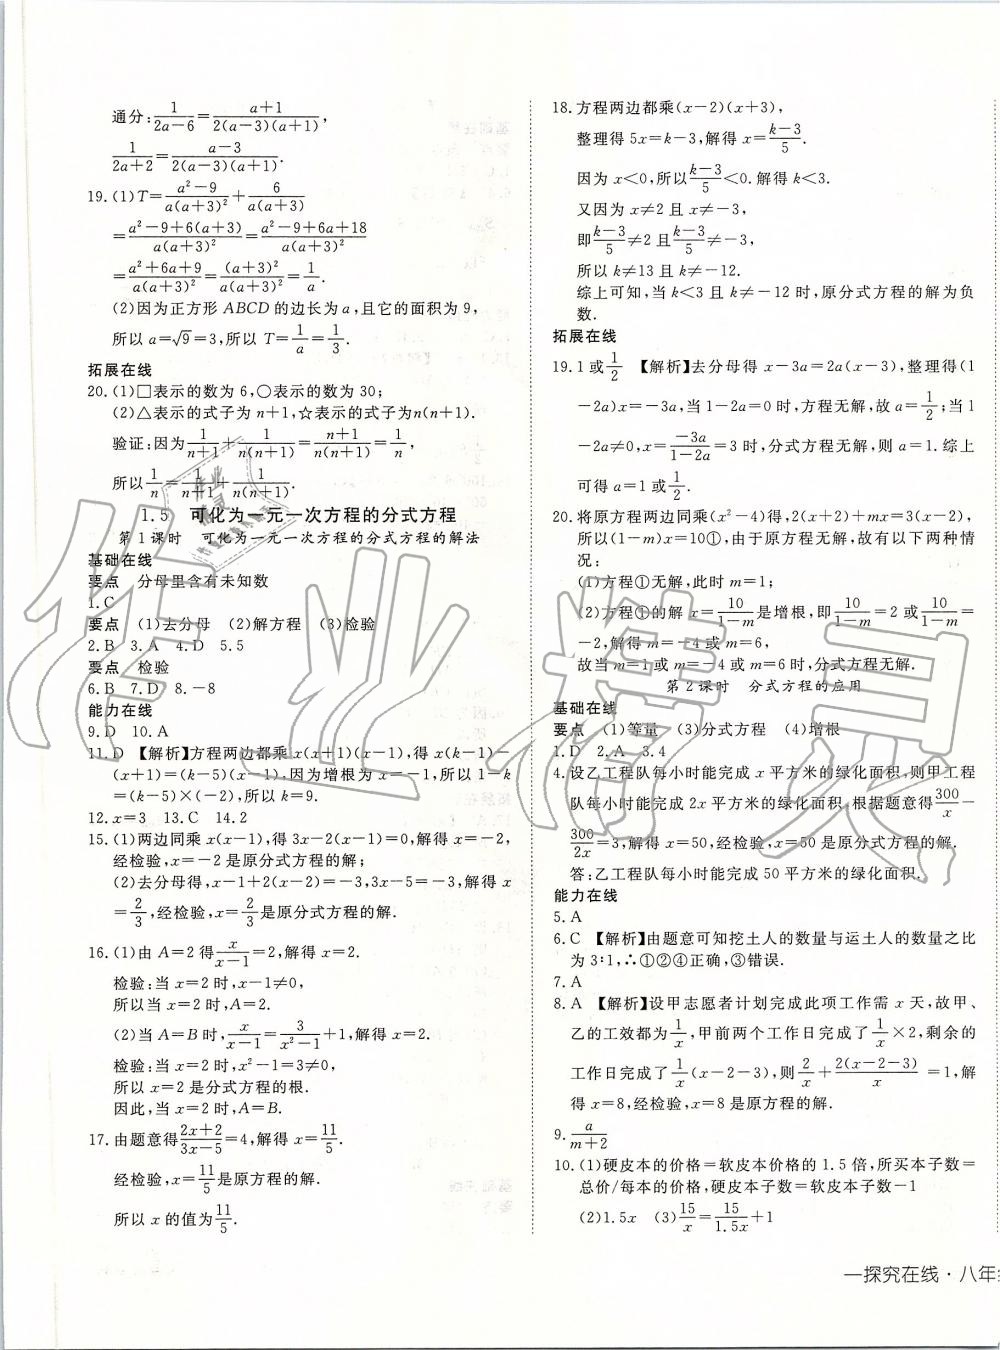 通分:1/(2a-6)=(a+1)/(2(a-3)(a+1)),
1/(2a+2)=(a-3)/(2(a-3)(a+1)).
19.(1)T=(a²-9)/(a(a+3)²)+6/(a(a+3))
=(a²-9+6(a+3))/(a(a+3)²)=(a²-9+6a+18)/(a(a+3)²)
=(a²+6a+9)/(a(a+3)²)=(a+3)²/(a(a+3)²)=1/a.
(2)因为正方形 ABCD 的边长为 a,且它的面积为 9,
所以 a=√9=3,所以 T=1/a=1/3.
拓展在线
20.(1)□表示的数为 6,○表示的数为 30;
(2)△表示的式子为 n+1,☆表示的式子为n(n+1).
验证:因为1/(n+1)+1/(n(n+1))=(n+1)/(n(n+1))=1/n,
所以1/n=1/(n+1)+1/(n(n+1)).
1.5 可化为一元一次方程的分式方程
第1课时 可化为一元一次方程的分式方程的解法
基础在线
要点 分母里含有未知数
1.C
要点 (1)去分母 (2)解方程 (3)检验
2.B 3.A 4.D 5.5
要点 检验
6.B 7.D 8.-8
能力在线
9.D 10.A
11.D 【解析】方程两边都乘 x(x+1)(x-1),得 x(k-1)-
(x+1)=(k-5)(x-1),因为增根为 x=-1,所以 1-k
=(k-5)×(-2),所以 k=9.
12.x=3 13.C 14.2
15.(1)两边同乘 x(x-1),得 3x-2(x-1)=0,解得 x=-2,
经检验,x=-2 是原分式方程的解;
(2)去分母得,x-1+2(x-2)=-3,3x-5=-3,解得 x
=2/3,经检验,x=2/3是原分式方程的解.
16.(1)由 A=2 得x/(x-1)=2,解得 x=2.
检验:当 x=2 时,x-1≠0,
所以当 x=2 时,A=2.
(2)当 A=B 时,x/(x-1)=3/(x²-1)+1,解得 x=2.
检验:当 x=2 时,x²-1=3≠0,
所以 x=2 是分式方程的根.
因此,当 x=2 时,A=B.
17.由题意得(2x+2)/(3x-5)=4,解得 x=11/5.
经检验,x=11/5是原方程的解.
所以 x 的值为11/5.
18.方程两边都乘(x-2)(x+3),
整理得 5x=k-3,解得 x=(k-3)/5.
因为 x<0,所以(k-3)/5<0.解得 k<3.
又因为 x≠2 且 x≠-3,
即(k-3)/5≠2 且(k-3)/5≠-3,
所以 k≠13 且 k≠-12.
综上可知,当 k<3 且 k≠-12 时,原分式方程的解为负
数.
拓展在线
19.1 或1/2 【解析】去分母得 x-3a=2a(x-3),整理得(1
-2a)x=-3a,当 1-2a=0 时,方程无解,故 a=1/2;当 1
-2a≠0,x=-3a/(1-2a)=3 时,分式方程无解,则 a=1.综上
可得 a=1 或1/2.
20.将原方程两边同乘(x²-4)得,2(x+2)+mx=3(x-2),
所以(1-m)x=10①,由于原方程无解,故有以下两种情
况:
(1)方程①无解,此时 m=1;
(2)方程①的解 x=10/(1-m)是增根,即10/(1-m)=2 或10/(1-m)=
-2,解得 m=-4 或 m=6,
故当 m=1 或 m=-4 或 m=6 时,分式方程无解.
第2课时 分式方程的应用
基础在线
要点 (1)等量 (3)分式方程 (4)增根
1.D 2.A 3.4
4.设乙工程队每小时能完成 x 平方米的绿化面积,则甲工程
队每小时能完成 2x 平方米的绿化面积.根据题意得300/x-
300/2x=3,解得 x=50,经检验,x=50是原分式方程的解.
答:乙工程队每小时能完成 50 平方米的绿化面积.
能力在线
5.A
6.C 【解析】由题意可知挖土人的数量与运土人的数量之比
为 3∶1,∴①②④正确,③错误.
7.A
8.A 【解析】设甲志愿者计划完成此项工作需 x 天,故甲、
乙的工效都为1/x,甲前两个工作日完成了1/x×2,剩余的
工作日完成了1/x(x-2-3),则2/x+2(x-2-3)/x=1,解
得 x=8,经检验,x=8 是原方程的解.
9.a/(m+2)
10.(1)硬皮本的价格=软皮本价格的 1.5 倍,所买本子数=
总价/每本的价格,硬皮本本子数=软皮本本子数-1
(2)1.5x (3)15/x=15/1.5x+1
一探究在线·八年
作业精灵